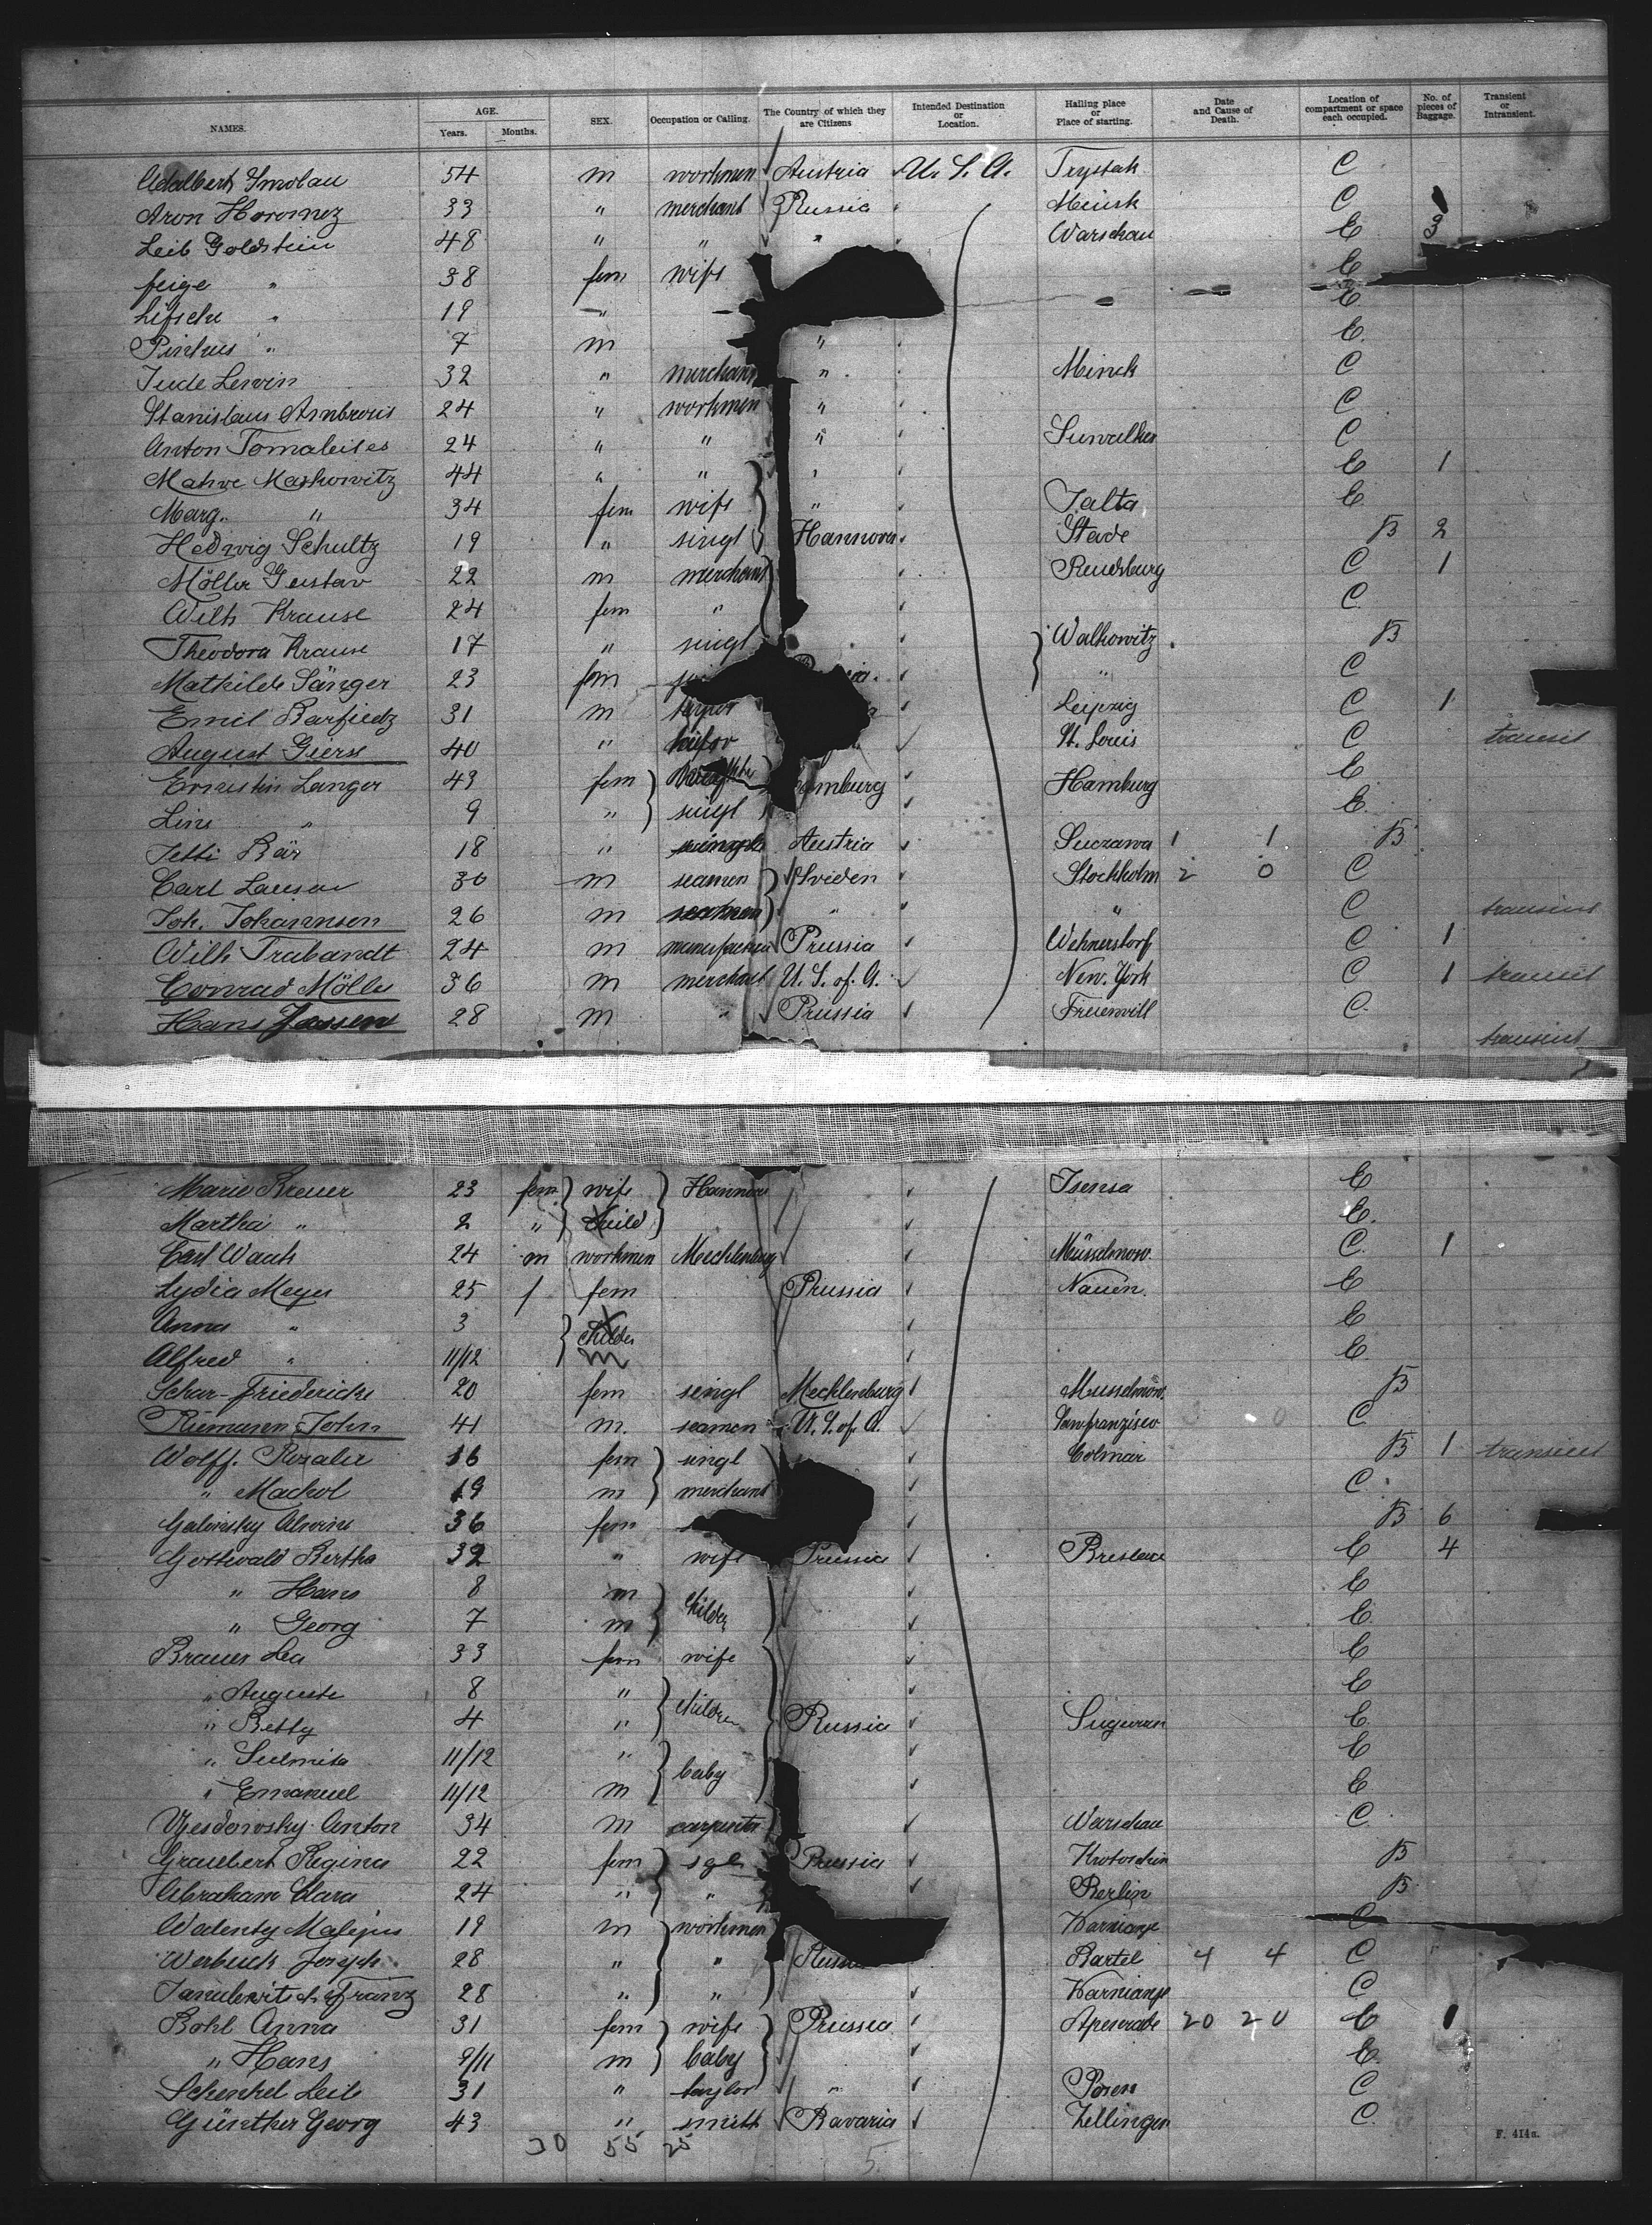 NAMES. AGE. Years. Months. SEX. Occupation or Calling. The Country of which they are Citizens Intended Destination or Location. Hailing place or Place of starting. Date and Cause of Death. Location of compartment or space each occupied. No. of pieces of Baggage. Transient or Intransient.
Adalbert Smolau 54 m workmen Austria U. S. A. Trystak C
Aron 33 " merchant Russia Meinsk C
Leib Goldstein 48 " " " Warschau E 3
feige " 38 fem wife E
Lifsche " 19 " E
Pinkus " 7 m " E
Jude Lewin 32 " merchant " Minck C
Stanislaus Ambrovis 24 " workmen " C
Anton Tomaleites 24 " " " C
Mahve Maskowitz 44 " " " E 1
Marg. " 34 fem wife " Jalta E
Hedwig Schultz 19 " singl Hannover Stade B 2
Möller Gustav 22 m merchant Rendsburg C 1
Wilh Krause 24 fem " C
Theodora Krause 17 " singl Walkowitz B
Mathilde Sänger 23 fem " C
Emil 31 m Leipzig C 1
August Gierse 40 " St. Louis C transit
Ernestin Langer 43 fem Hamburg Hamburg E
Line " 9 " singl E
Jetti Bär 18 " single Austria Suczawa 1 1 B
Carl 30 m seamen Sviden Stockholm 2 0 C
Joh. Johannsen 26 m seamen " " C transient
Wilh Trabandt 24 m Prussia Wehnerstorf C 1
Conrad Möller 36 m merchant U. S. of. A. New. York C 1 transit
Hans Jassen 28 m Prussia Freienvill C
transient
Marie Breuer 23 fem wife Hannover Isensa E
Martha " 2 " child E
Carl Wauk 24 m workmen Mecklenburg Müsselmow. C 1
Lydia Meyer 25 f fem Prussia Nauen. E
Anna " 3 childer E
Alfred " 11/12 m E
Schar-Friedericke 20 fem singl Mecklenburg Musselmow. B
Riemann John 41 m. seamen U. S. of. A. Sanfranzisco C
Wolff. Rosalie 16 fem singl Colmar B 1 transient
" Machol 19 m merchant C
Galinsky Alwine 36 fem B 6
Gottwald Bertha 32 " wife Prussia Breslau E 4
" Hans 8 m childer E
" Georg 7 m E
Brauer Lea 33 fem wife E
" Auguste 8 " children E
" Betty 4 " Russia E
" Sulmita 11/12 " baby E
" Emanuel 11/12 m E
Anton 34 m carpenter Warschau C
Graubert Regina 22 fem sgl Prussia Krotoschin B
Abraham Clara 24 " " Berlin B
Walenty 19 m workmen C
Werbuck Joseph 28 " " Russia Bartel 4 4 C
Franz 28 " " C
Bohl Anna 31 fem wife Prussia Apenrade 20 20 E 1
" Hans 9/11 m baby E
Schenkel Leib 31 " taylor " Posen C
Günther Georg 43 " smith Bavaria Zellingen C
30 55 25 5
F. 414a.